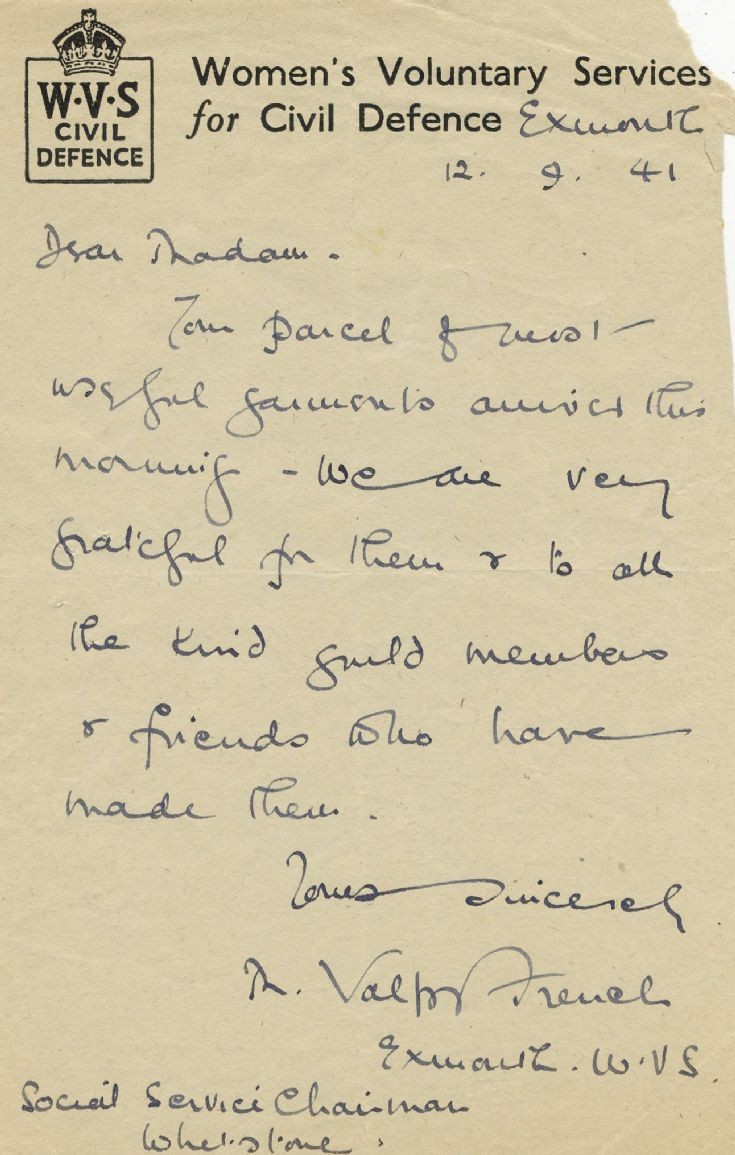 W·V·S
CIVIL
DEFENCE
Women's Voluntary Services
for Civil Defence Exmouth
12. 9. 41
Dear Madam.
Your parcel of most
useful garments arrived this
morning - We are very
grateful for them & to all
the kind guild members
& friends who have
made them.
Yours sincerely
M. Valpy French
Exmouth. W.V.S.
Social Service Chairman
Whetstone.